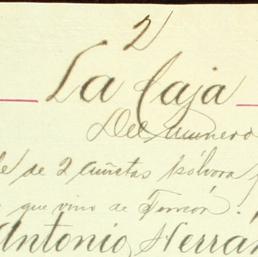 2
La Caja
Del numero
de 2 cuñetas pólvora
que vino de Torreón.
Antonio Herrá